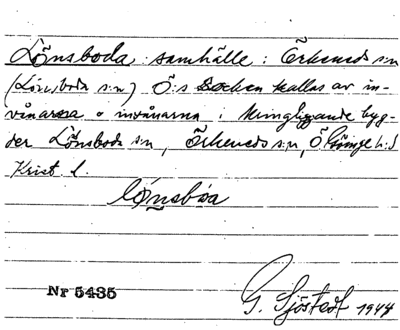 Lönsboda samhälle: Örkeneds s:n
(Lönsboda s:n) Ö:s Socken kallas av in-
vånarna o invånarna i kringliggande byg-
der Lönsboda s:n, Örkeneds s:n, Ö Göinge h:d
Krist l.
lönsbóa
Nr 5435
G. Sjöstedt 1944